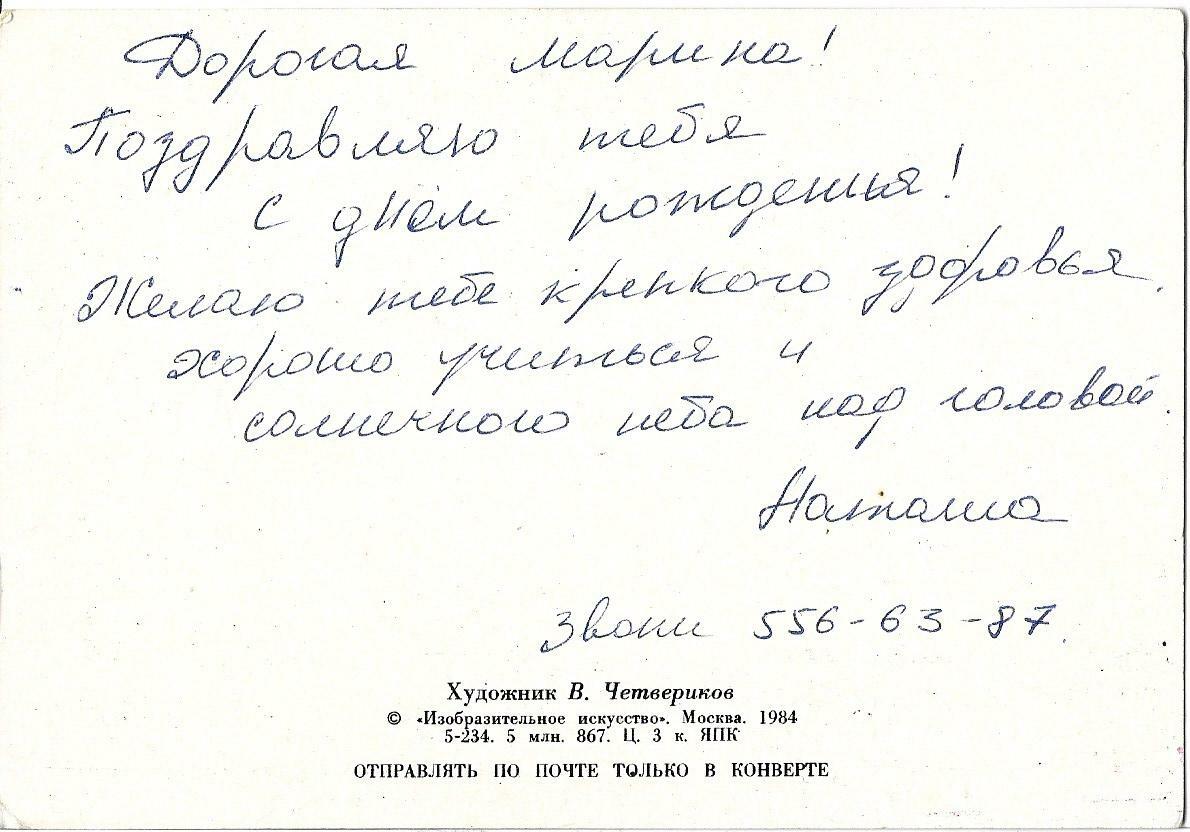 Дорогая Марина!
Поздравляю тебя
с днём рождения!
Желаю тебе крепкого здоровья,
хорошо учиться и
солнечного неба над головой.
Наташа
Звони 556-63-87.
Художник В. Четвериков
© «Изобразительное искусство». Москва. 1984
5-234. 5 млн. 867. Ц. 3 к. ЯПК
ОТПРАВЛЯТЬ ПО ПОЧТЕ ТОЛЬКО В КОНВЕРТЕ